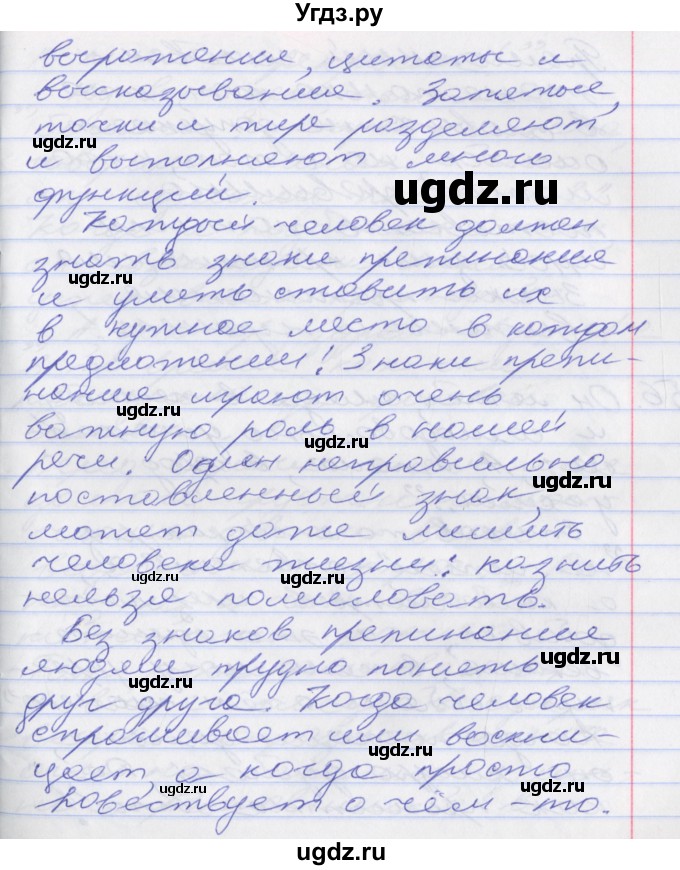 Угдз.ру
выражения, цитаты и
высказывания. Запятые,
точки и тире разделяют
и выполняют много
функций.
ugdz.ru
ugdz.ru
Каждый человек должен
знать знаки препинания
ugdz.ru
и уметь ставить их
в нужное место в каждом
ugdz.ru
предложении! Знаки препи-
нания играют очень
ugdz.ru
важную роль в нашей
ugdz.ru
речи. Один неправильно
поставленный знак,
может даже лишить
человека жизни: казнить
ugdz.ru
ugdz.ru
нельзя помиловать.
Без знаков препинания
ugdz.ru
людям трудно понять
ugdz.ru
друг друга. Когда человек
спрашивает или воскли-
ugdz.ru
цает, а когда просто
повествует о чём-то.
ugdz.ru
ugdz.ru